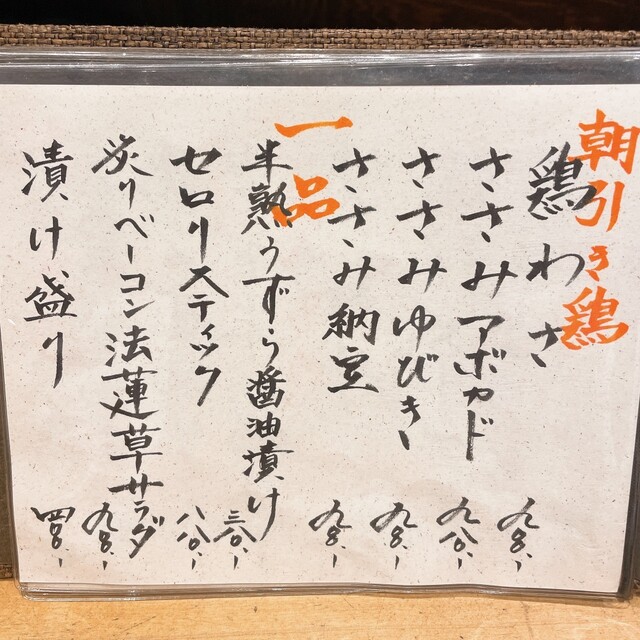 朝引き鶏
鶏わさ 九八〇.-
ささみアボカド 九八〇.-
ささみゆびき 九八〇.-
ささみ納豆 九八〇.-
一品
半熟うずら醤油漬け 三八〇.-
セロリスティック
炙りベーコン法蓮草サラダ 九八〇.-
漬け盛り 四八〇.-